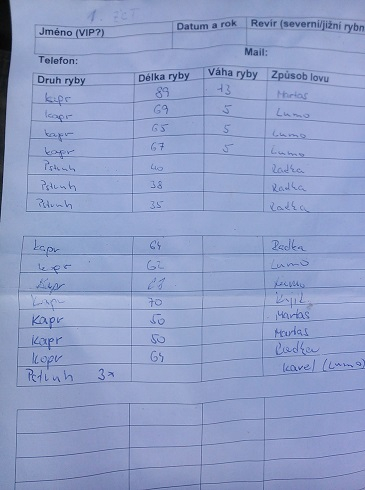 Jméno (VIP?) Datum a rok Revír (severní/jižní rybn
Telefon: Mail:
Druh ryby Délka ryby Váha ryby Způsob lovu
kapr 89 13 Martas
kapr 69 5 Lumo
kapr 65 5 Lumo
kapr 67 5 Lumo
Pstruh 40 Radka
Pstruh 38 Radka
Pstruh 35 Radka
kapr 64 Radka
kapr 62 Lumo
kapr
kapr 70
Kapr 50 Martas
Kapr 50 Martas
kapr 64 Radka
Pstruh 3x Karel (Lumo)